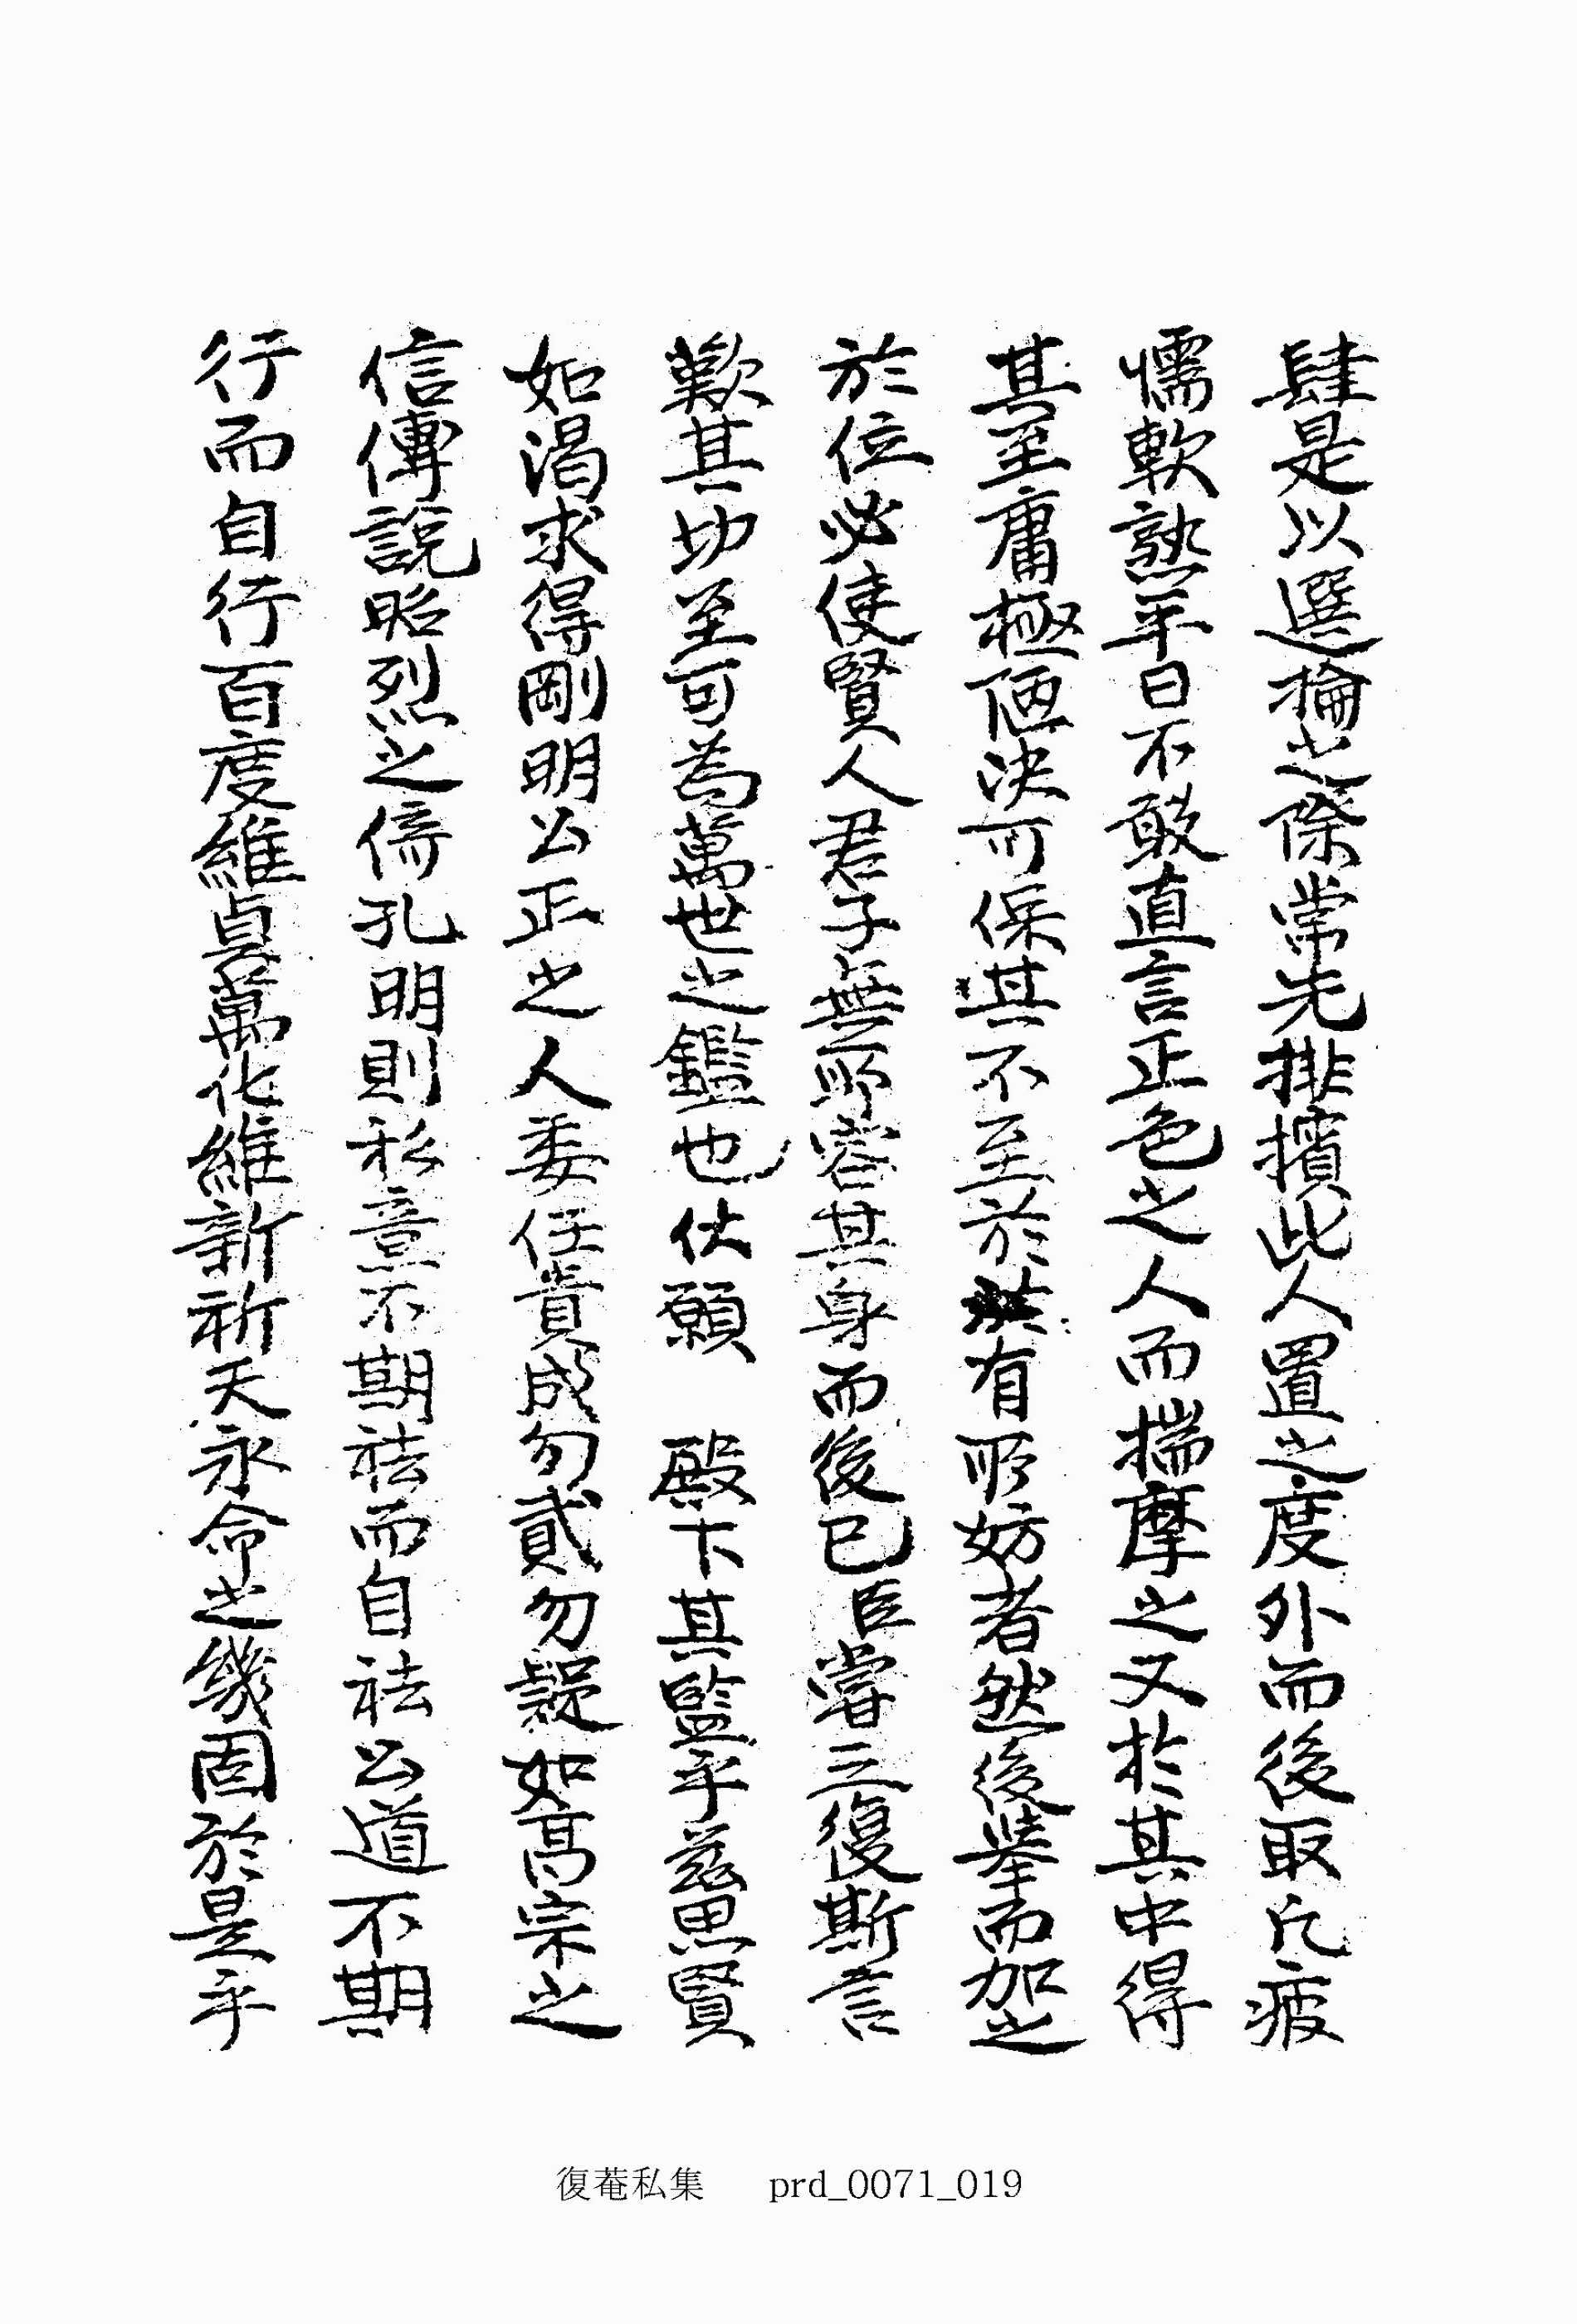 肆是以選掄之際常先排擯此人置之度外而後取凡疲
懦軟熟平日不敢直言正色之人而揣摩之又於其中得
其至庸極陋决可保其不至於有所妨者然後擧而加之
於位必使賢人君子無所容其身而後已臣嘗三復斯言
歎其切至可為萬世之鑑也伏願 殿下其監乎玆思賢
如渴求得剛明公正之人委任責成勿貳勿疑如高宗之
信傅說昭烈之倚孔明則私意不期祛而自祛公道不期
行而自行百度維貞萬化維新祈天永命之幾固於是乎
復菴私集 prd_0071_019